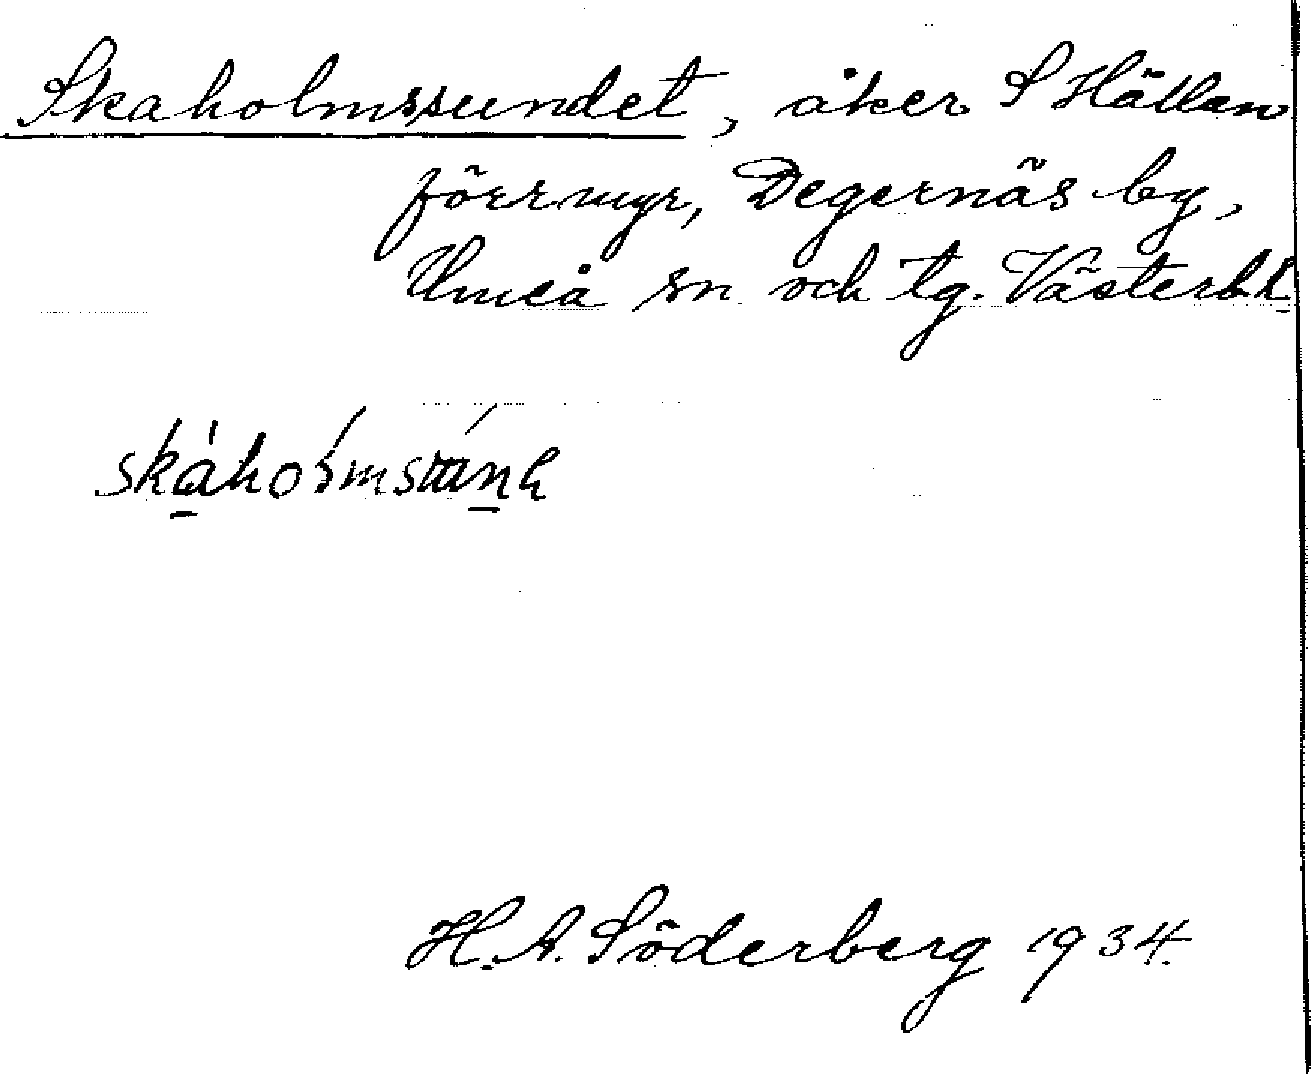 Skaholmssundet, åker S Hällan
förr myr, Degernäs by,
Umeå sn och tg. Västerb.l.
H. A. Söderberg 1934.